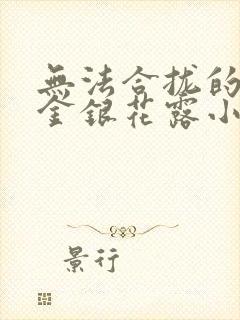 無法合拢的
金銀花露小
景行